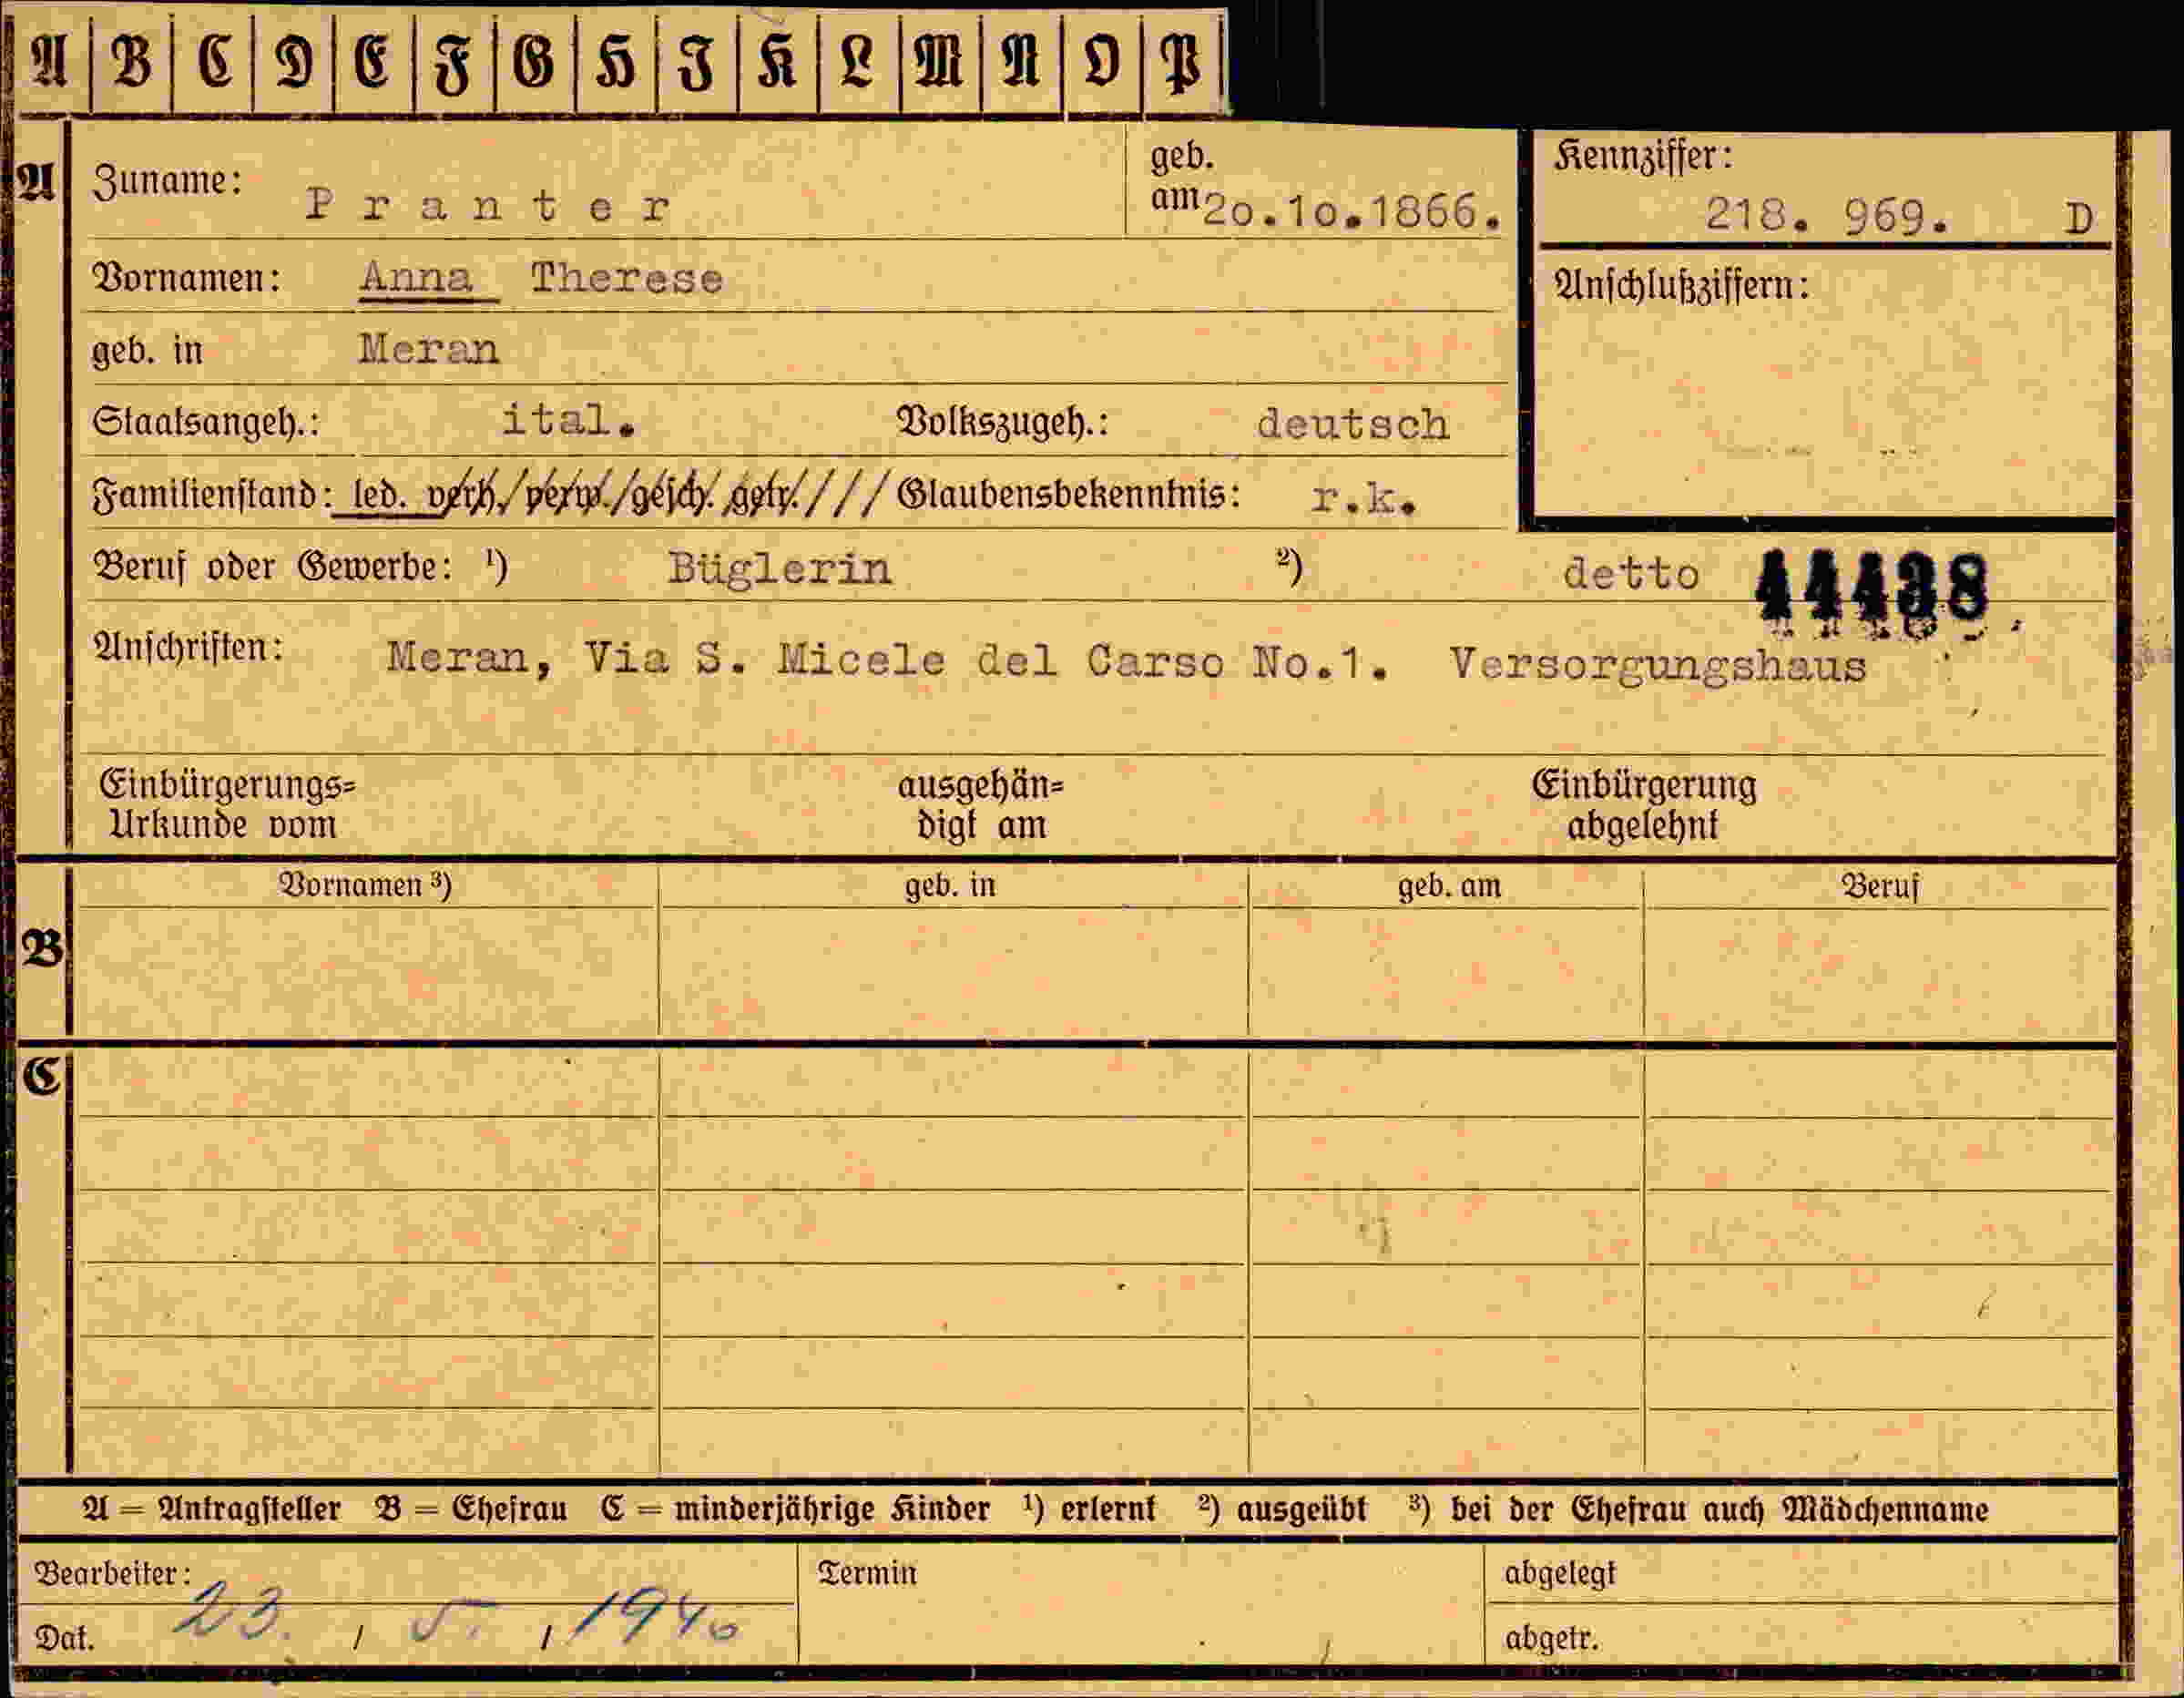 A B C D E F G H I K L M N O P
A Zuname: Pranter geb. am 20.10.1866. Kennziffer: 218. 969. D
Vornamen: Anna Therese Anschlußziffern:
geb. in Meran
Staatsangeh.: ital. Volkszugeh.: deutsch
Familienstand: led. verh./verw./gesch. getr./// Glaubensbekenntnis: r.k.
Beruf oder Gewerbe: ¹) Büglerin ²) detto 44438
Anschriften: Meran, Via S. Micele del Carso No.1. Versorgungshaus
Einbürgerungs= ausgehän= Einbürgerung
Urkunde vom digt am abgelehnt
Vornamen ³) geb. in geb. am Beruf
B
C
A = Antragsteller B = Ehefrau C = minderjährige Kinder ¹) erlernt ²) ausgeübt ³) bei der Ehefrau auch Mädchenname
Bearbeiter: Termin abgelegt
Dat. 23. / 5. / 1940 abgetr.